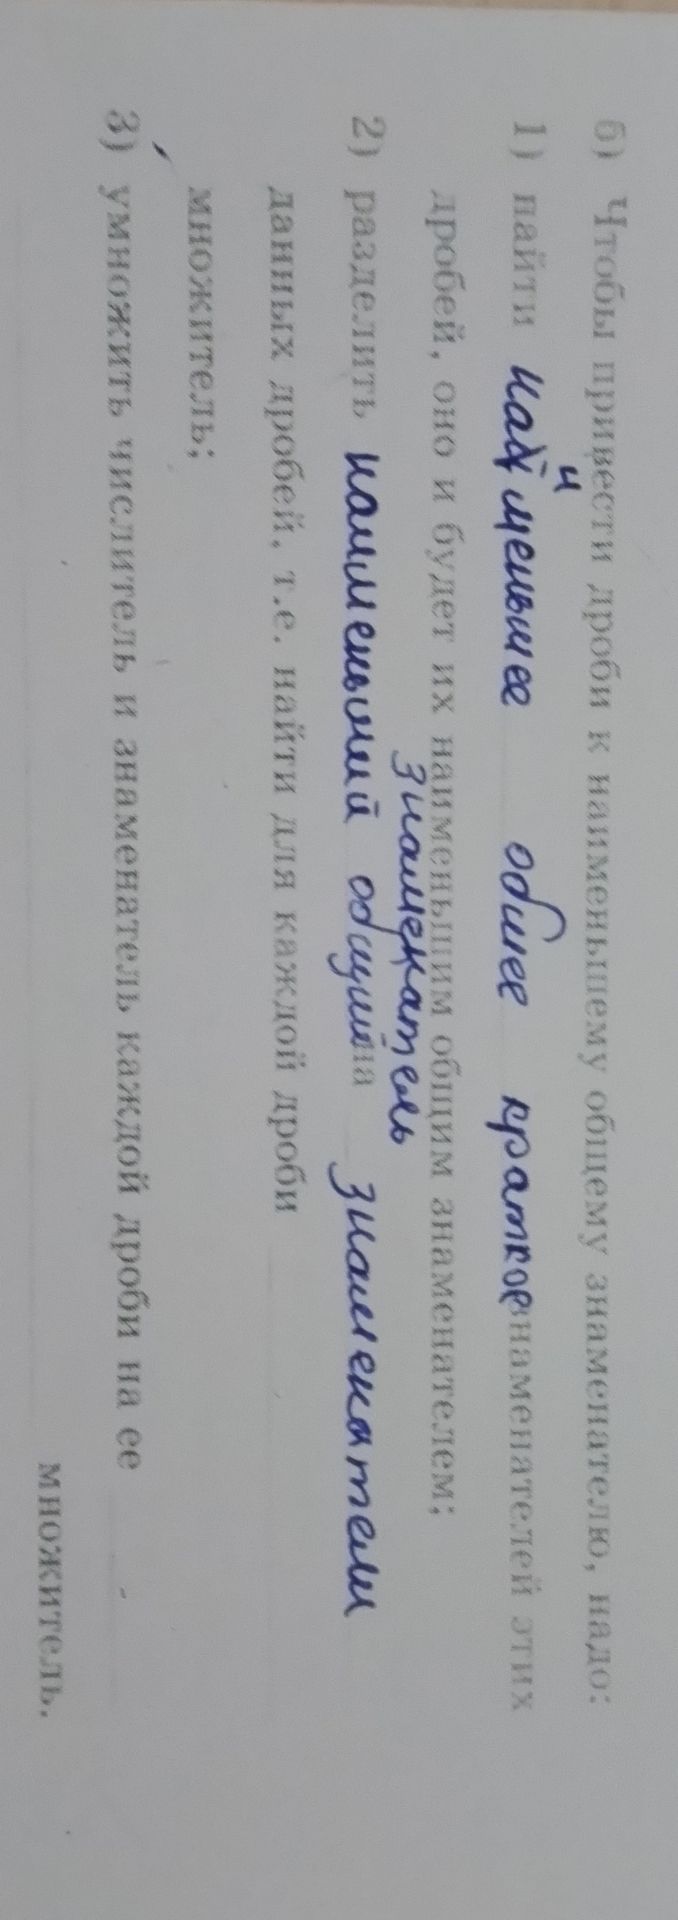 б) Чтобы привести дроби к наименьшему общему знаменателю, надо:
1) найти наименьшее общее краткое знаменателей этих
дробей, оно и будет их наименьшим общим знаменателем;
знаменатель
2) разделить наименьший общий на знаменатели
данных дробей, т.е. найти для каждой дроби
множитель;
3) умножить числитель и знаменатель каждой дроби на ее
множитель.